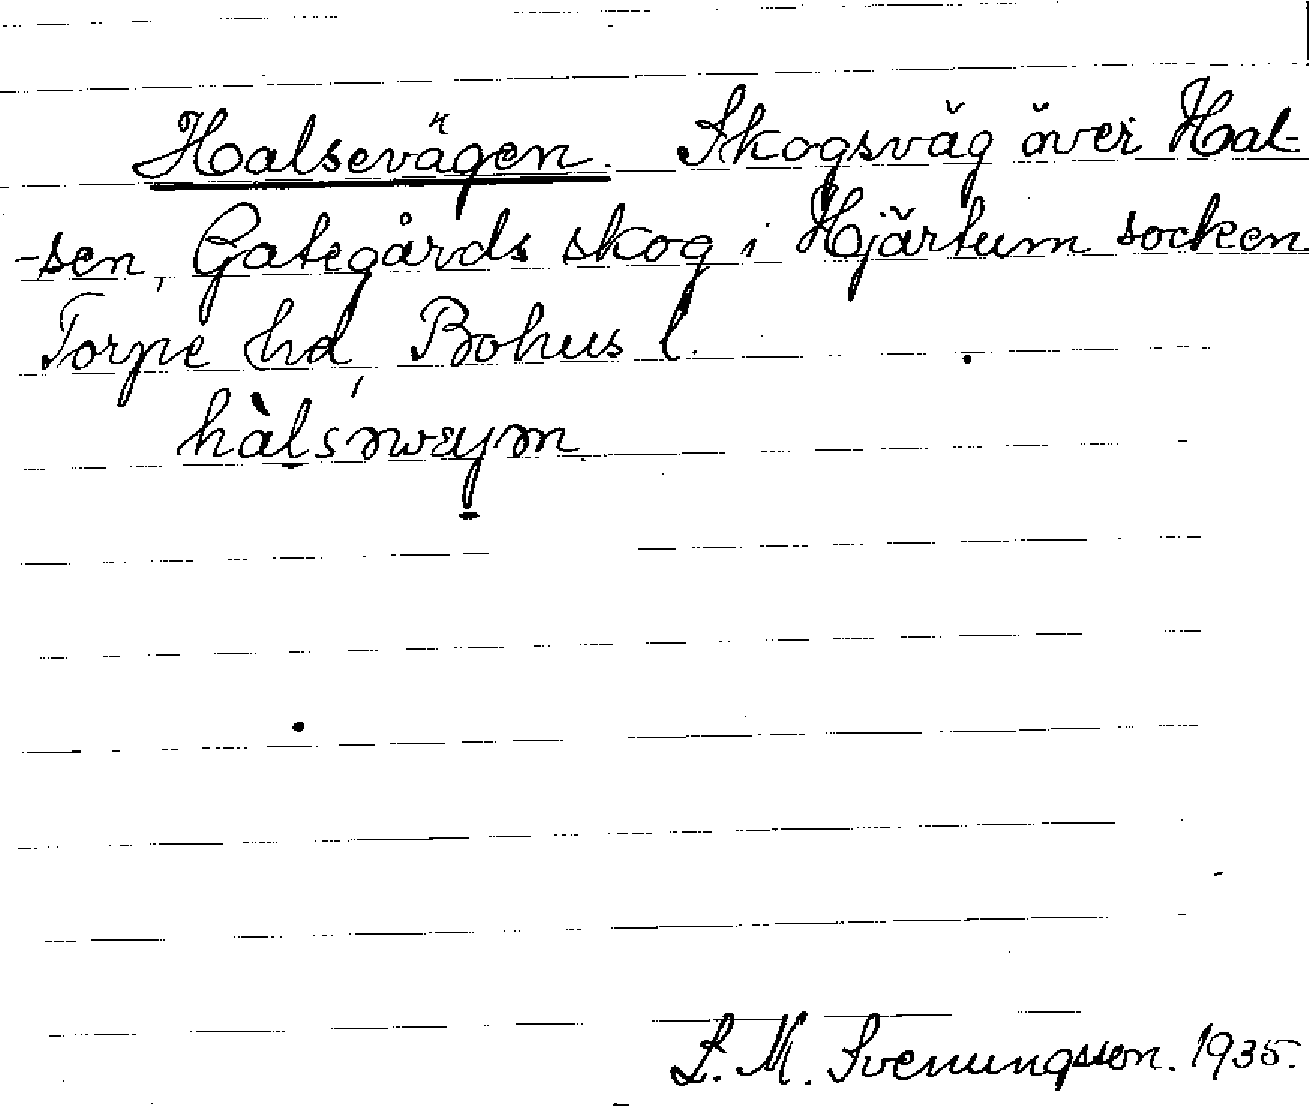 Halsevägen. Skogsväg över Hal-
-sen, Gategårds skog i Hjärtum socken
Torpe hd, Bohus l.
L. M. Svenungsson. 1935.